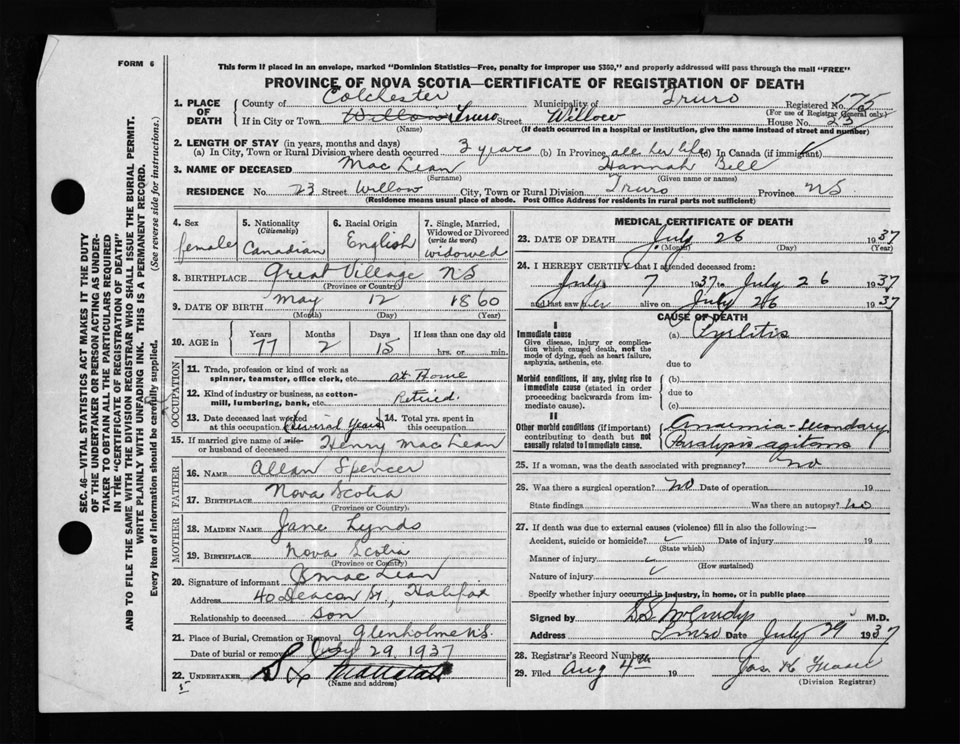 FORM 6
This form if placed in an envelope, marked "Dominion Statistics—Free, penalty for improper use $300," and properly addressed will pass through the mail "FREE"
PROVINCE OF NOVA SCOTIA—CERTIFICATE OF REGISTRATION OF DEATH
1. PLACE OF DEATH County of Colchester Municipality of Truro Registered No. 175
(For use of Registrar General only)
If in City or Town Willow Truro Street Willow House No. 23
(Name) (If death occurred in a hospital or institution, give the name instead of street and number)
2. LENGTH OF STAY (in years, months and days)
(a) In City, Town or Rural Division where death occurred 3 years (b) In Province all her life (c) In Canada (if immigrant)
3. NAME OF DECEASED MacLean Hannah Bell
(Surname) (Given name or names)
RESIDENCE No. 23 Street Willow City, Town or Rural Division Truro Province NS
(Residence means usual place of abode. Post Office Address for residents in rural parts not sufficient)
4. Sex female
5. Nationality (Citizenship) Canadian
6. Racial Origin English
7. Single, Married, Widowed or Divorced (write the word) widowed
8. BIRTHPLACE Great Village NS
(Province or Country)
9. DATE OF BIRTH May 12 1860
(Month) (Day) (Year)
10. AGE in Years 77 Months 2 Days 15 If less than one day old hrs. or min.
OCCUPATION
11. Trade, profession or kind of work as spinner, teamster, office clerk, etc. at Home
12. Kind of industry or business, as cotton-mill, lumbering, bank, etc. Retired
13. Date deceased last worked at this occupation (Several Years)
14. Total yrs. spent in this occupation
15. If married give name of wife or husband of deceased Henry MacLean
FATHER
16. NAME Allan Spencer
17. BIRTHPLACE Nova Scotia
(Province or Country)
MOTHER
18. MAIDEN NAME Jane Lynds
19. BIRTHPLACE Nova Scotia
(Province or Country)
20. Signature of informant MacLean
Address 40 Deacon St., Halifax
Relationship to deceased son
21. Place of Burial, Cremation or Removal Glenholme N.S.
Date of burial or removal July 29, 1937
22. UNDERTAKER
(Name and address)
MEDICAL CERTIFICATE OF DEATH
23. DATE OF DEATH July 26 1937
(Month) (Day) (Year)
24. I HEREBY CERTIFY that I attended deceased from:
July 7 1937 to July 26 1937
and last saw her alive on July 26 1937
CAUSE OF DEATH
I
Immediate cause (a) Pyelitis
Give disease, injury or complication which caused death, not the mode of dying, such as heart failure, asphyxia, asthenia, etc.
due to
Morbid conditions, if any, giving rise to immediate cause (stated in order proceeding backwards from immediate cause).
(b)
due to
(c)
II
Other morbid conditions (if important) contributing to death but not causally related to immediate cause.
Anaemia - secondary
Paralysis agitans
25. If a woman, was the death associated with pregnancy? no
26. Was there a surgical operation? no Date of operation 19
State findings Was there an autopsy? no
27. If death was due to external causes (violence) fill in also the following:—
Accident, suicide or homicide? Date of injury 19
(State which)
Manner of injury
(How sustained)
Nature of injury
Specify whether injury occurred in industry, in home, or in public place
Signed by M.D.
Address Truro Date July 29 1937
28. Registrar's Record Number
29. Filed Aug 4th
(Division Registrar)
SEC. 46—VITAL STATISTICS ACT MAKES IT THE DUTY
OF THE UNDERTAKER OR PERSON ACTING AS UNDER-
TAKER TO OBTAIN ALL THE PARTICULARS REQUIRED
IN THE "CERTIFICATE OF REGISTRATION OF DEATH"
AND TO FILE THE SAME WITH THE DIVISION REGISTRAR WHO SHALL ISSUE THE BURIAL PERMIT.
WRITE PLAINLY WITH UNFADING INK. THIS IS A PERMANENT RECORD.
Every item of information should be carefully supplied. (See reverse side for instructions.)